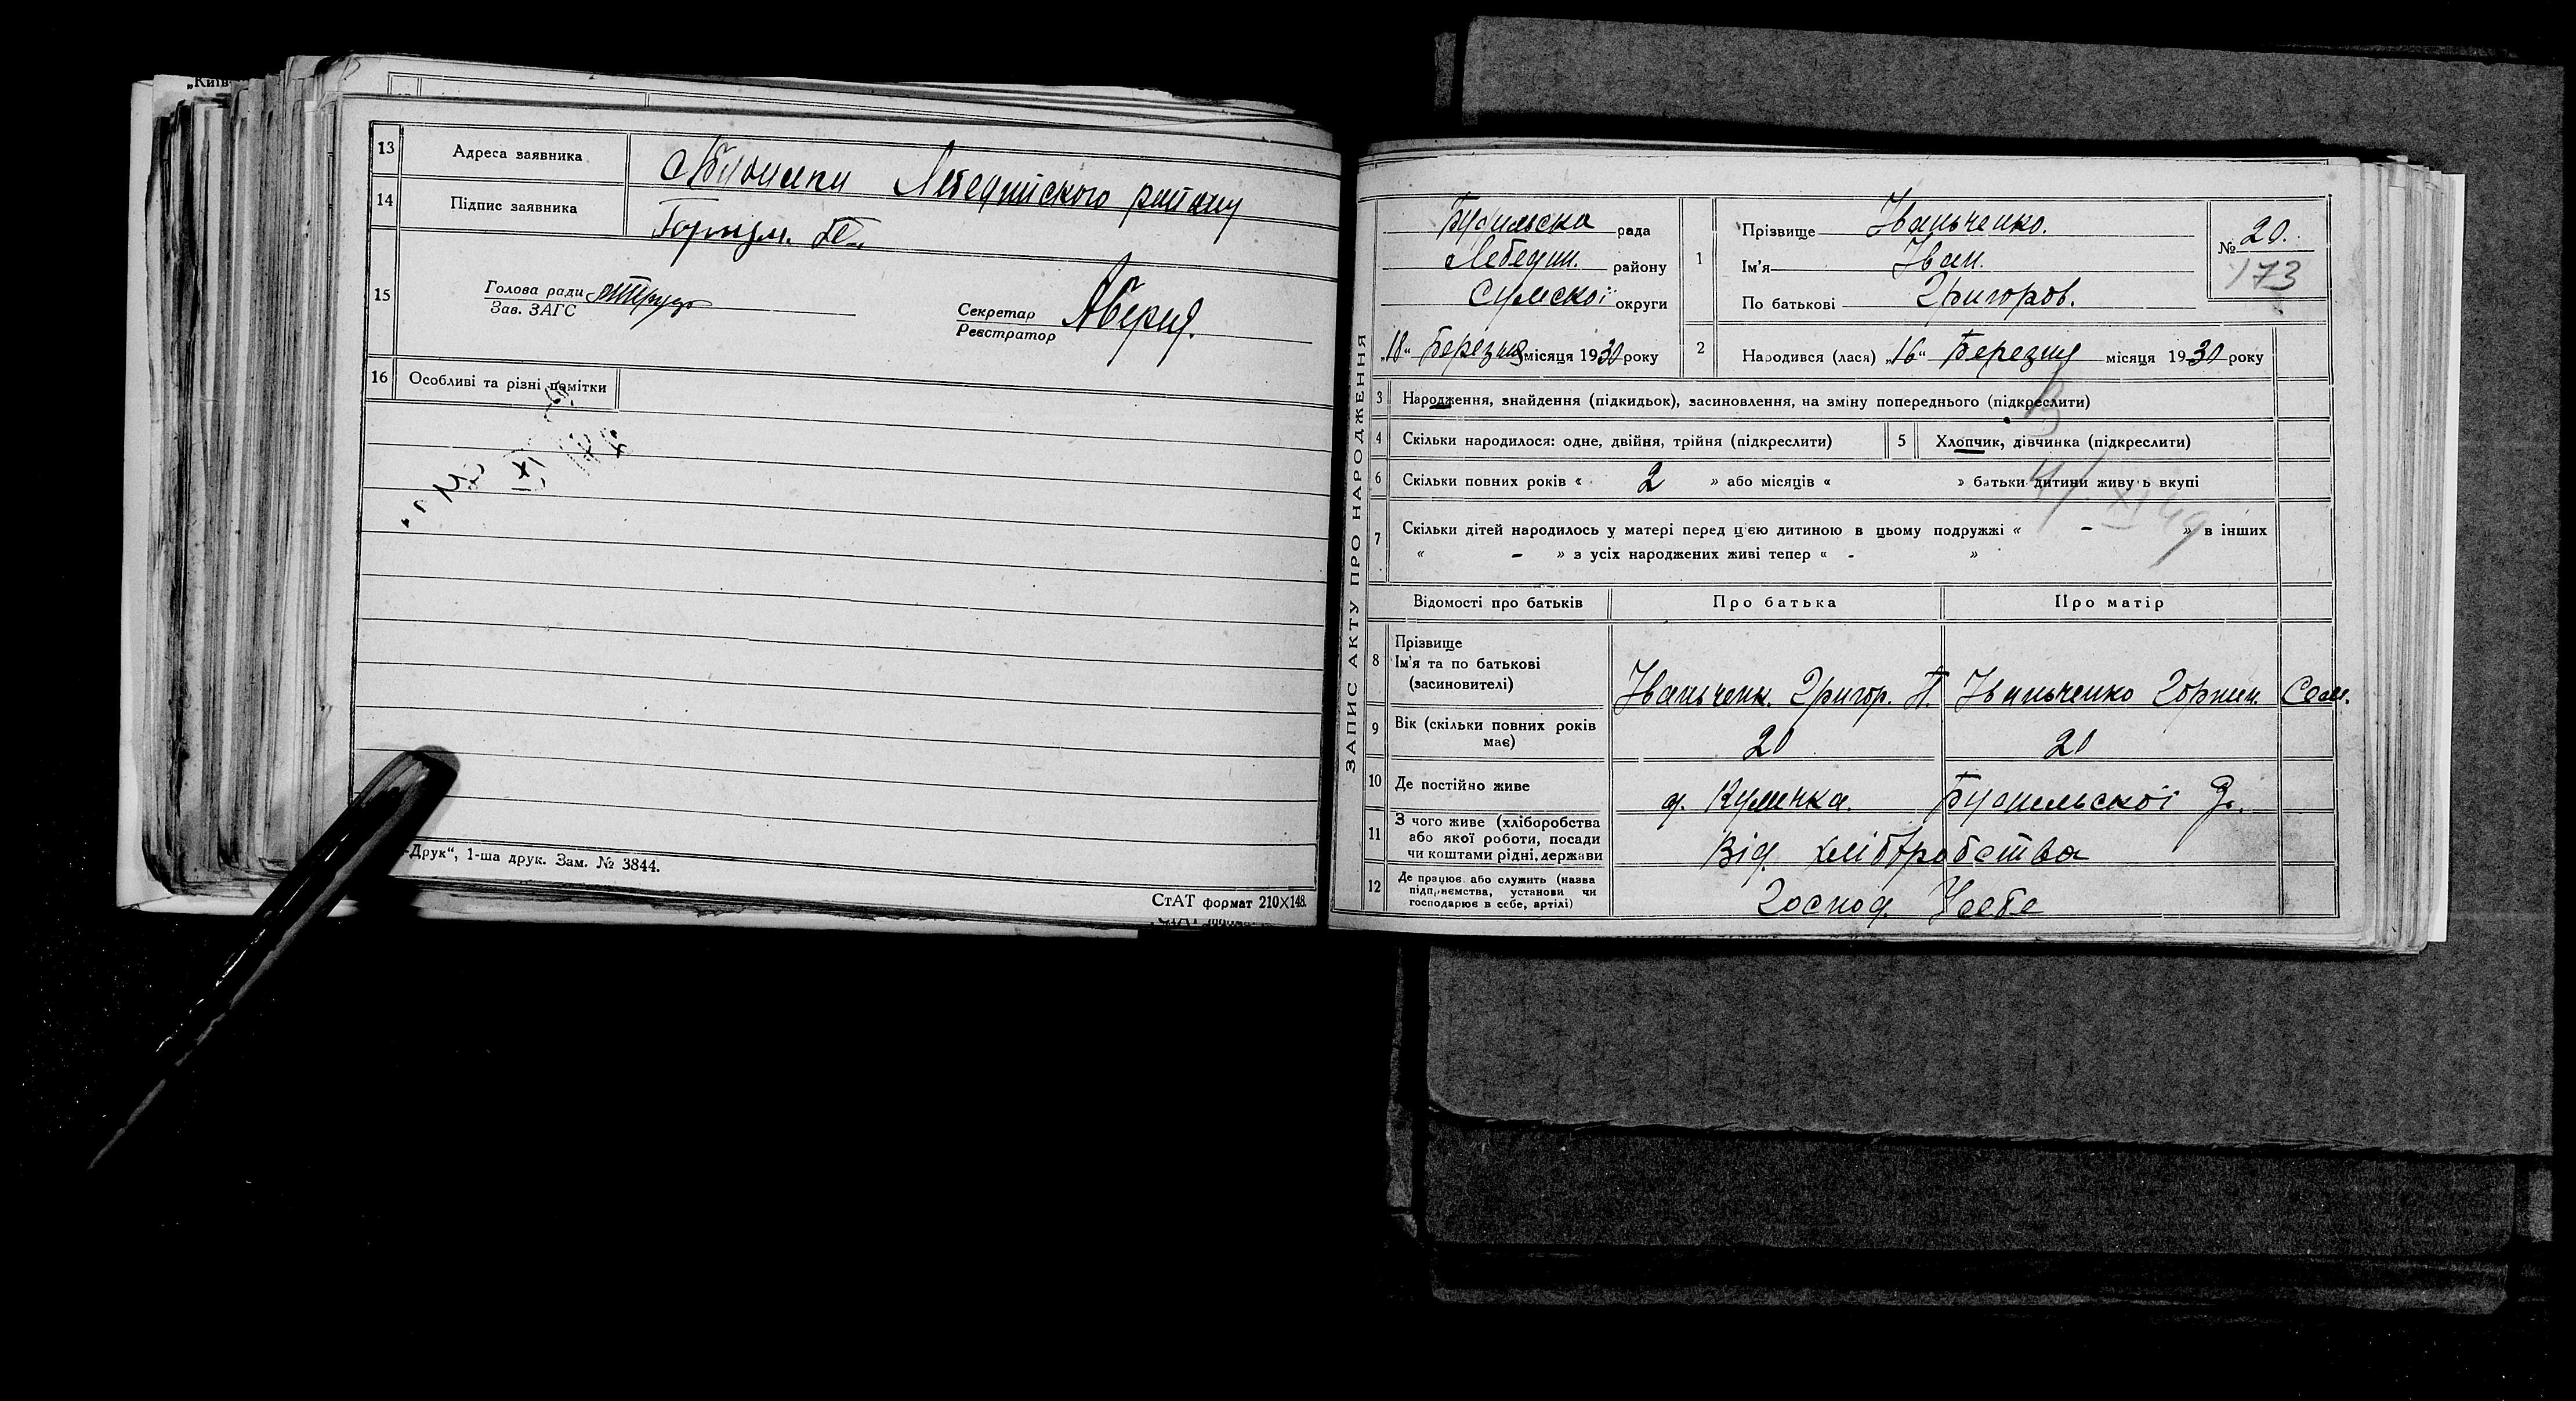 „Київ
13 Адреса заявника Лебединского району
14 Підпис заявника
15 Голова ради
Зав. ЗАГС
Секретар
Реєстратор
16 Особливі та різні помітки
-Друк“, 1-ша друк. Зам. № 3844.
СтАТ формат 210×148.
ЗАПИС АКТУ ПРО НАРОДЖЕННЯ
рада
Лебедин. району
Сумскої округи
„18“ Березня місяця 1930 року
1 Прізвище Іваньченко.
Ім'я Іван.
По батькові Григоров.
№ 20.
173
2 Народився (лася) „16“ Березня місяця 1930 року
3 Народження, знайдення (підкидьок), засиновлення, на зміну попереднього (підкреслити)
4 Скільки народилося: одне, двійня, трійня (підкреслити) 5 Хлопчик, дівчинка (підкреслити)
6 Скільки повних років « 2 » або місяців « » батьки дитини живуть вкупі
7 Скільки дітей народилось у матері перед цією дитиною в цьому подружжі « - » в інших
« - » з усіх народжених живі тепер « - »
Відомості про батьків Про батька Про матір
8 Прізвище
Ім'я та по батькові
(засиновителі)
Іваньченк. Григор. П. Іваньченко Горпин. Сем.
9 Вік (скільки повних років
має)
20 20
10 Де постійно живе
11 З чого живе (хліборобства
або якої роботи, посади
чи коштами рідні, держави
Від хліборобства
12 Де працює або служить (назва
підприємства, установи чи
господарює в себе, артілі)
Господ. У себе